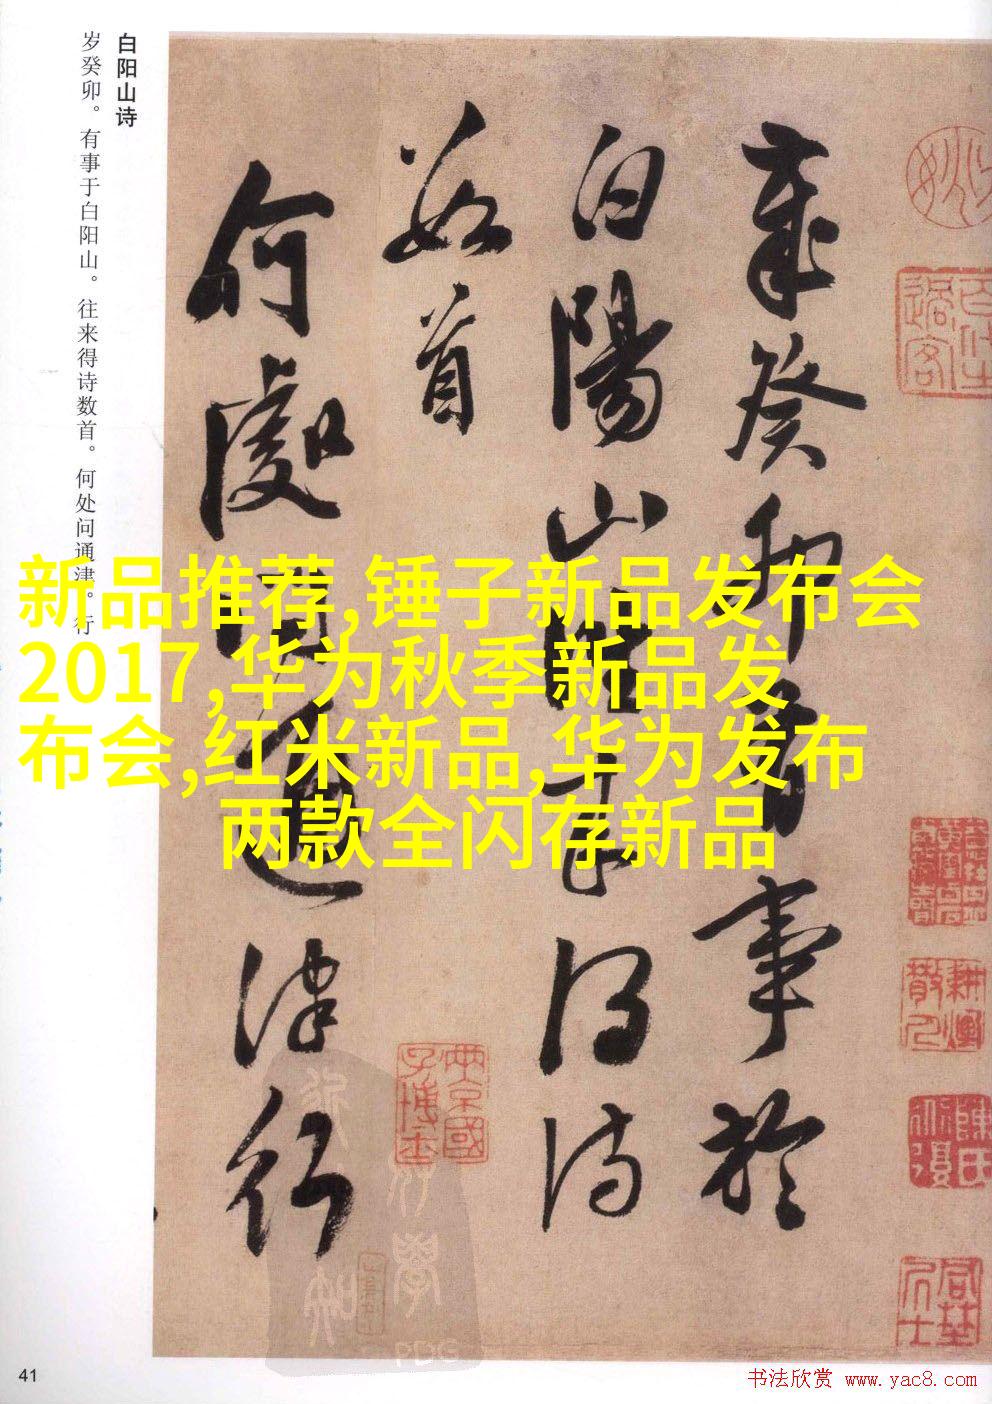 白阳山诗
岁癸卯。有事于白阳山。往来得诗数首。何处问通津。行
歲癸卯有事於
白陽山往来得诗
数首
何處问通津行
新品推荐,锤子新品发布会
2017,华为秋季新品发
布会,红米新品,华为发布
两款全闪存新品
41
书法欣赏 www.yac8.com
PDG